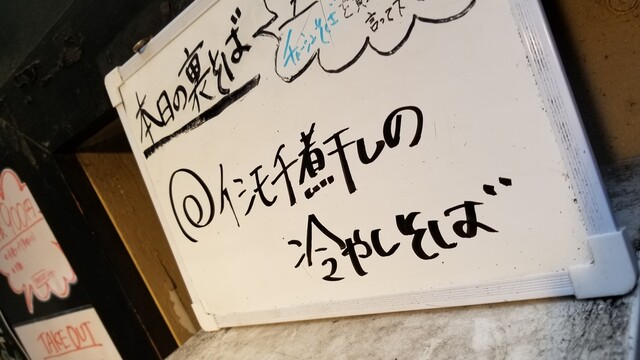 本日の裏そば
チャーシューそば
を
言って下
◎イシモチ煮干しの
冷やしそば
TAKE OUT